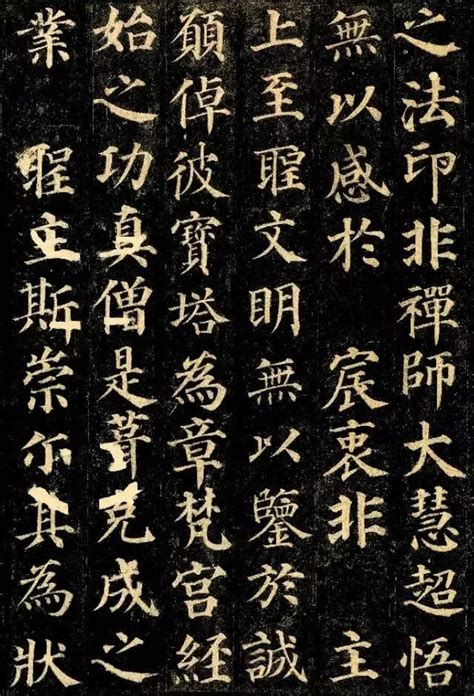 之法印非禪師大慧超悟
無以感於 宸衷非 主
上至聖文明無以鑒於誠
願倬彼寶塔為章梵宮經
始之功真僧是葺克成之
業 聖主斯崇尔其為狀